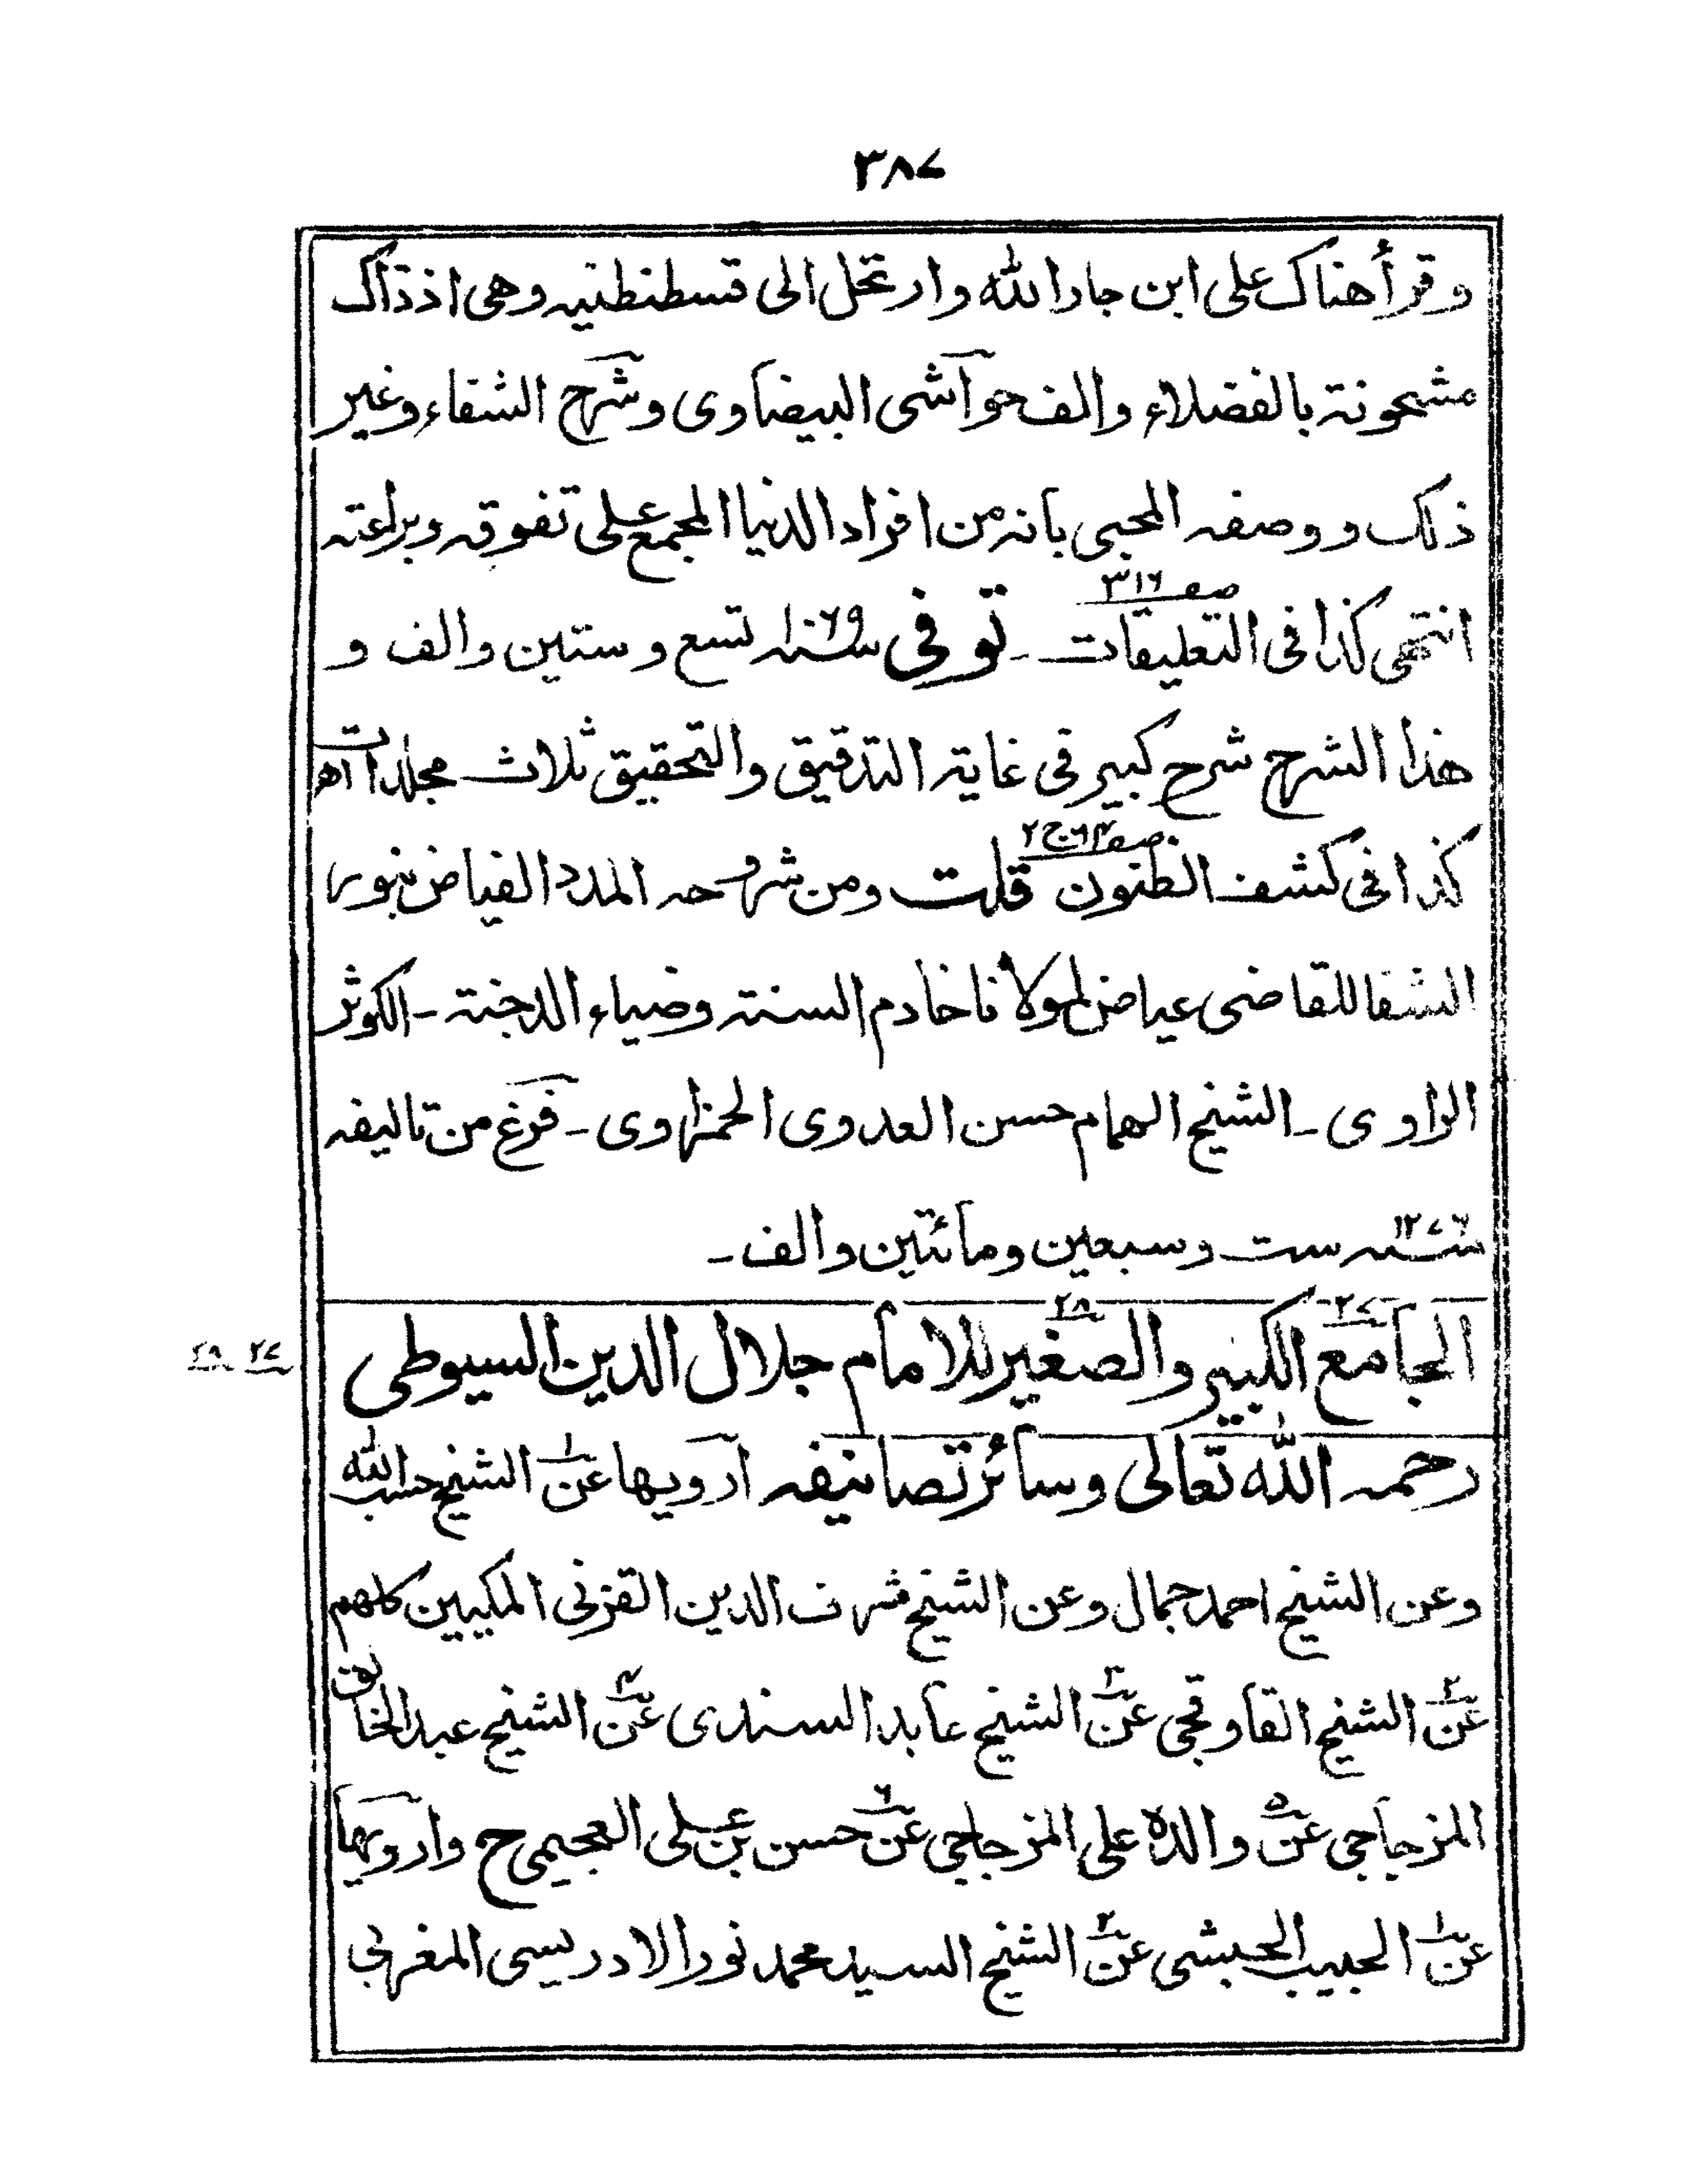 ٣٨٧
وقرأ هناك على ابن جار الله وارتحل الى قسطنطنيه وهى اذ ذاك
مشحونة بالفضلاء والف حواشى البيضاوى وشرح الشفاء وغير
ذلك ووصفه المحبى بانه من افراد الدنيا المجمع على تفوقه وبراعته
انتهى كذا فى التعليقات صفـ٣١٦ ـ توفى سنه ١٠٦٩ تسع وستين والف و
هذا الشرح شرح كبير فى غاية التدقيق والتحقيق ثلاث مجلدات اه
كذا فى كشف الظنون صفـ٦٤ ج٢ قلت ومن شروحه المدد الفياض بنور
الشفا للقاضى عياض لمولانا خادم السنة وضياء الدجنة ـ الكوثر
الراوى ـ الشيخ الهمام حسن العدوى الحمزاوى ـ فرغ من تاليفه
سنه ١٢٧٦ ست وسبعين ومائتين والف ـ
٢٧ ٢٨
الجامع ٢٧ الكبير والصغير ٢٨ للامام جلال الدين السيوطى
رحمه الله تعالى وسائر تصانيفه ارويها عن ١ الشيخ حسب الله
وعن الشيخ احمد جمال وعن الشيخ شرف الدين القزنى المكيين كلهم
عن ٢ الشيخ القاوقجى عن ٣ الشيخ عابد السندى عن ٤ الشيخ عبد الخالق
المزجاجى عن ٥ والده على المزجاجى عن ٦ حسن بن على العجيمى ح وارويها
عن ١ الحبيب الحبشى عن ٢ الشيخ السيد محمد نور الادريسى المغربى